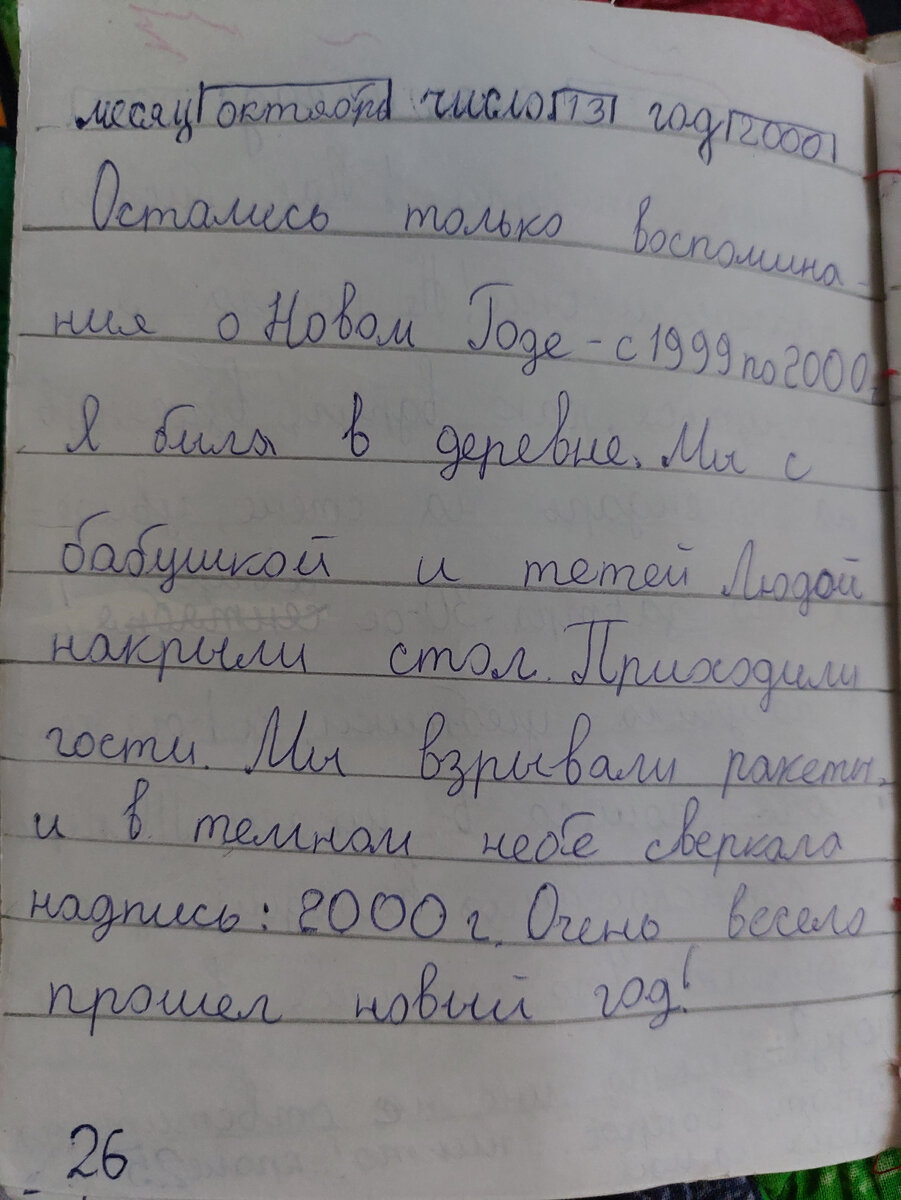 месяц октябрь число 13 год 2000
Остались только воспомина-
ния о Новом Годе - с 1999 по 2000.
Я была в деревне. Мы с
бабушкой и тетей Людой
накрыли стол. Приходили
гости. Мы взрывали ракеты,
и в темном небе сверкала
надпись: 2000 г. Очень весело
прошел новый год!
26